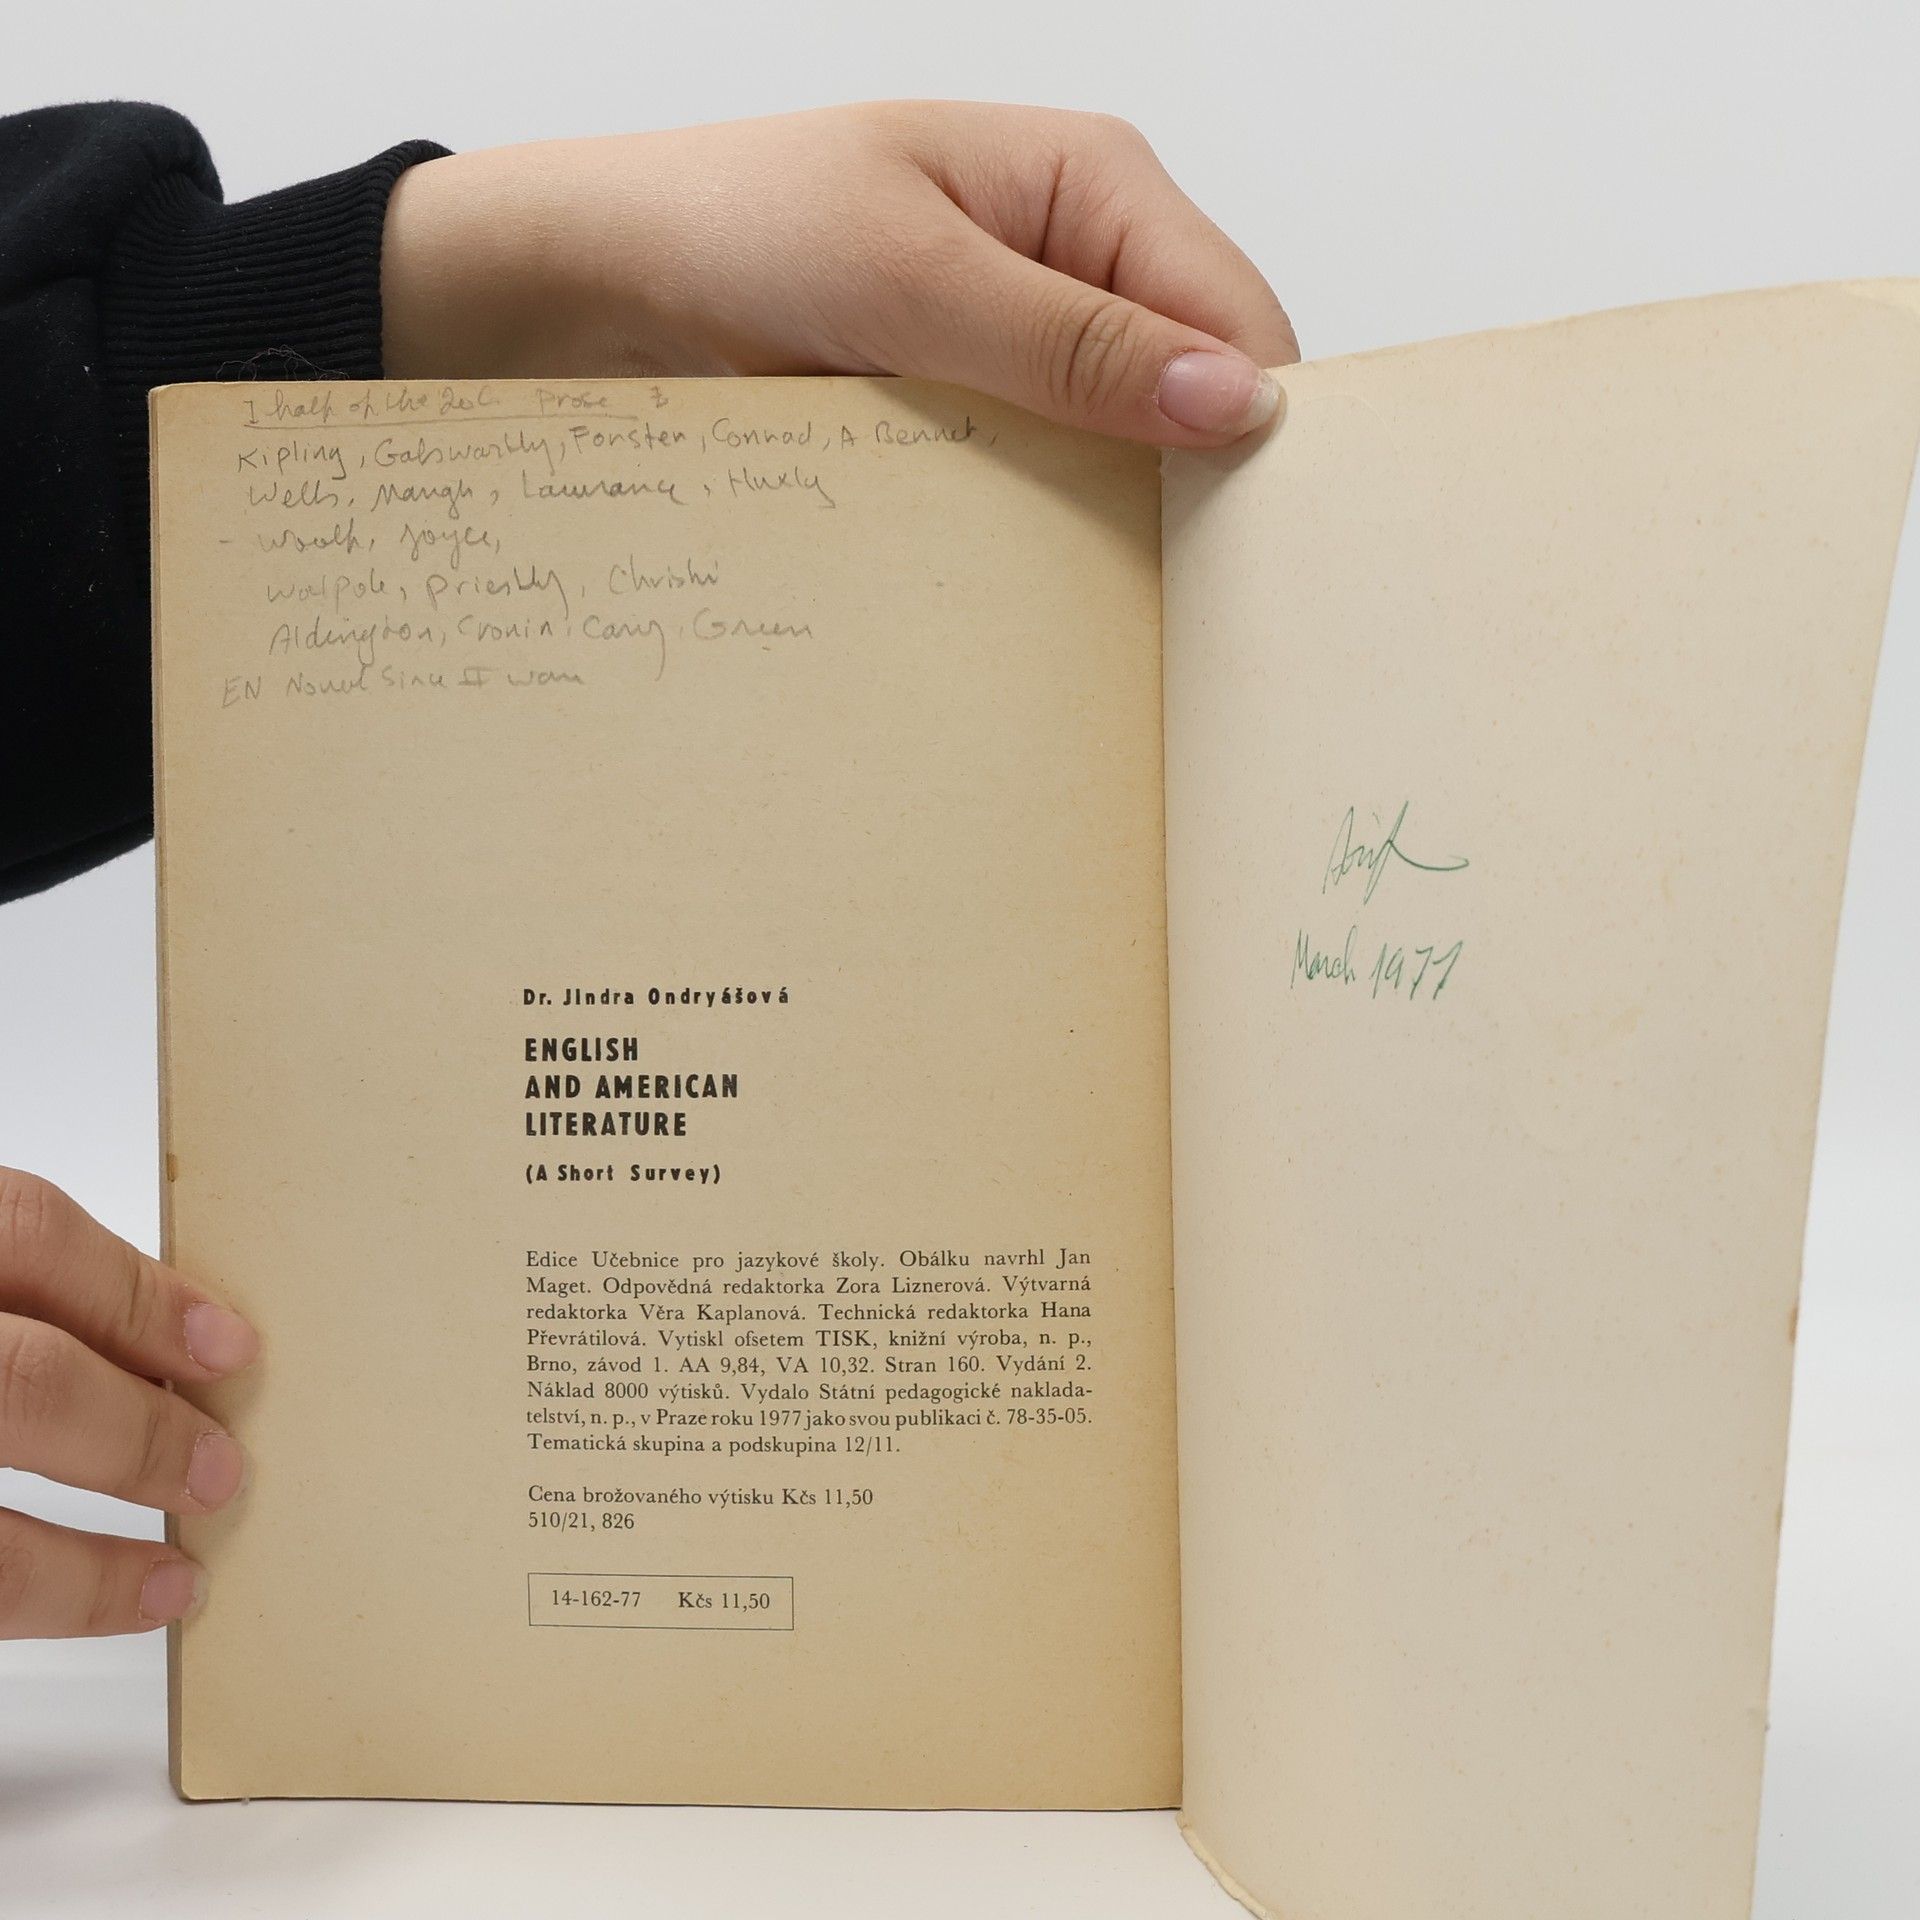 I half of the 20 C. Prose
Kipling, Galsworthy, Forster, Conrad, A Bennet,
Wells, Maugh, Lawrance, Huxly
- Woolf, Joyce,
Walpole, Priestly, Christi
Aldington, Cronin, Cary, Green
EN Novel since II war
Dr. Jindra Ondryášová
ENGLISH
AND AMERICAN
LITERATURE
(A Short Survey)
Edice Učebnice pro jazykové školy. Obálku navrhl Jan
Maget. Odpovědná redaktorka Zora Liznerová. Výtvarná
redaktorka Věra Kaplanová. Technická redaktorka Hana
Převrátilová. Vytiskl ofsetem TISK, knižní výroba, n. p.,
Brno, závod 1. AA 9,84, VA 10,32. Stran 160. Vydání 2.
Náklad 8000 výtisků. Vydalo Státní pedagogické naklada-
telství, n. p., v Praze roku 1977 jako svou publikaci č. 78-35-05.
Tematická skupina a podskupina 12/11.
Cena brožovaného výtisku Kčs 11,50
510/21, 826
14-162-77 Kčs 11,50
March 1977